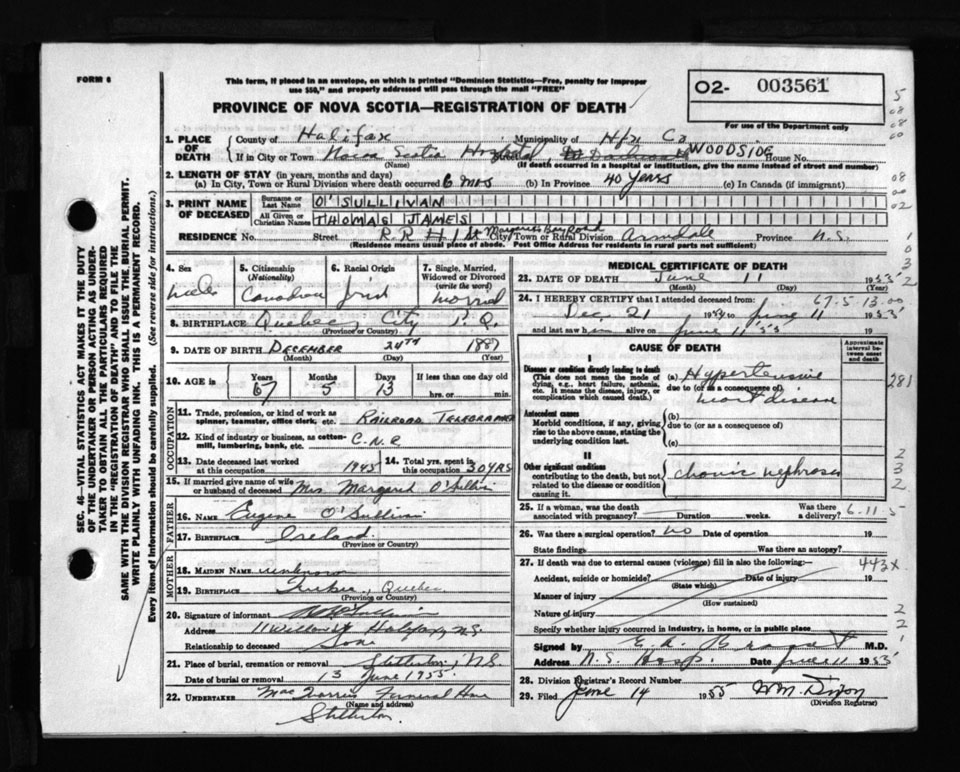 FORM 6
This form, if placed in an envelope, on which is printed "Dominion Statistics—Free, penalty for improper
use $50," and properly addressed will pass through the mail "FREE"
PROVINCE OF NOVA SCOTIA—REGISTRATION OF DEATH
02- 003561
For use of the Department only
SEC. 46—VITAL STATISTICS ACT MAKES IT THE DUTY
OF THE UNDERTAKER OR PERSON ACTING AS UNDER-
TAKER TO OBTAIN ALL THE PARTICULARS REQUIRED
IN THE "REGISTRATION OF DEATH" AND TO FILE THE
SAME WITH THE DIVISION REGISTRAR WHO SHALL ISSUE THE BURIAL PERMIT.
WRITE PLAINLY WITH UNFADING INK. THIS IS A PERMANENT RECORD.
Every item of information should be carefully supplied. (See reverse side for instructions.)
1. PLACE OF DEATH County of Halifax Municipality of Hfx Co
If in City or Town Nova Scotia Hospital WOODSIDE House No.
(Name) (If death occurred in a hospital or institution, give the name instead of street and number)
2. LENGTH OF STAY (in years, months and days)
(a) In City, Town or Rural Division where death occurred 6 mos (b) In Province 40 years (c) In Canada (if immigrant)
3. PRINT NAME OF DECEASED Surname or Last Name O'SULLIVAN
All Given or Christian Names THOMAS JAMES
RESIDENCE No. Street R R # 1 St Margarets Bay Road City, Town or Rural Division Armdale Province N.S.
(Residence means usual place of abode. Post Office Address for residents in rural parts not sufficient)
4. Sex Male
5. Citizenship (Nationality) Canadian
6. Racial Origin Irish
7. Single, Married, Widowed or Divorced (write the word) Married
8. BIRTHPLACE Quebec City P.Q.
(Province or Country)
9. DATE OF BIRTH DECEMBER 24TH 1887
(Month) (Day) (Year)
10. AGE IS Years 67 Months 5 Days 13 If less than one day old
hrs. or min.
OCCUPATION
11. Trade, profession, or kind of work as
spinner, teamster, office clerk, etc. RAILROAD TELEGRAPHER
12. Kind of industry or business, as cotton-
mill, lumbering, bank, etc. C.N.R
13. Date deceased last worked at this occupation 1945 14. Total yrs. spent in this occupation 30 YRS
15. If married give name of wife
or husband of deceased Mrs Margaret O'Sullivan
FATHER
16. NAME Eugene O'Sullivan
17. BIRTHPLACE Ireland
(Province or Country)
MOTHER
18. MAIDEN NAME unknown
19. BIRTHPLACE Quebec
(Province or Country)
20. Signature of informant
Address 11 Willow St Halifax, N.S.
Relationship to deceased Son
21. Place of burial, cremation or removal Stellarton, N.S.
Date of burial or removal 13 June 1955
22. UNDERTAKER Funeral Home
(Name and address)
Stellarton
MEDICAL CERTIFICATE OF DEATH
23. DATE OF DEATH June 11 1955
(Month) (Day) (Year)
24. I HEREBY CERTIFY that I attended deceased from: 67-5-13-00
Dec. 21 1954 to June 11 1955
and last saw him alive on June 11 '55 19
CAUSE OF DEATH
Approximate interval between onset and death
I
Disease or condition directly leading to death
(This does not mean the mode of
dying, e.g., heart failure, asthenia,
etc. It means the disease, injury, or
complication which caused death.)
(a) Hypertensive
due to (or as a consequence of)
heart disease
Antecedent causes
Morbid conditions, if any, giving
rise to the above cause, stating the
underlying condition last.
(b)
due to (or as a consequence of)
(c)
II
Other significant conditions
contributing to the death, but not
related to the disease or condition
causing it.
chronic nephrosis
25. If a woman, was the death associated with pregnancy? Duration weeks. Was there a delivery? 6-11-5
26. Was there a surgical operation? no Date of operation 19
State findings Was there an autopsy?
27. If death was due to external causes (violence) fill in also the following:— 443x
Accident, suicide or homicide? Date of injury 19
(State which)
Manner of injury
(How sustained)
Nature of injury
Specify whether injury occurred in industry, in home, or in public place
Signed by M.D.
Address N.S. Hosp. Date June 11 1955
28. Division Registrar's Record Number
29. Filed June 14 1955 Wm. Dixon
(Division Registrar)